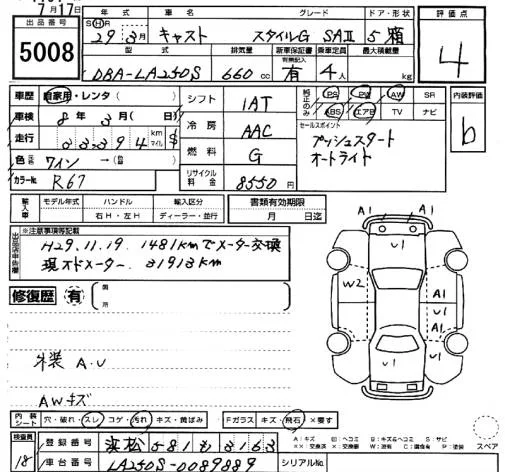 7月17日
出品番号
5008
年式 車名 グレード ドア・形状 評価点
S H R 29年3月 キャスト スタイルG SAⅡ 5 箱 4
型式 排気量 新車保証書 乗車定員 最大積載量
有無記入
DBA-LA250S 660cc 有 4人 kg
車歴 自家用・レンタ( )
車検 8年3月( 日)
走行 33394 km マイル $
色 元色 ワイン →( 色)
カラーNo. R67
シフト 1AT
冷房 AAC
燃料 G
リサイクル料金 8550円
純正のみ PS PW AW SR 内装評価
ABS エアB TV ナビ b
セールスポイント
プッシュスタート
オートライト
輸入車 モデル年式 ハンドル 輸入区分 書類有効期限
右H・左H ディーラー・並行 月 日迄
出品店申告欄
※注意事項等記載
H29.11.19. 1481kmでメーター交換
現オドメーター. 31913km
修復歴 有 箇所
外装 A.U
AWキズ
A1 A1
U1 U1
W2 A1
A1
U1 U1
内装シート 穴・破れ・スレ コゲ・汚れ キズ・黄ばみ Fガラス キズ・飛石 ×要す
A:キズ U:ヘコミ B:キズ&ヘコミ S:サビ
××:交換済 ×:交換要 W:波有 C:腐食有 P:塗装 スペア
検査員 18
登録番号 浜松581も3163
車台番号 LA250S-0089889 シリアルNo.